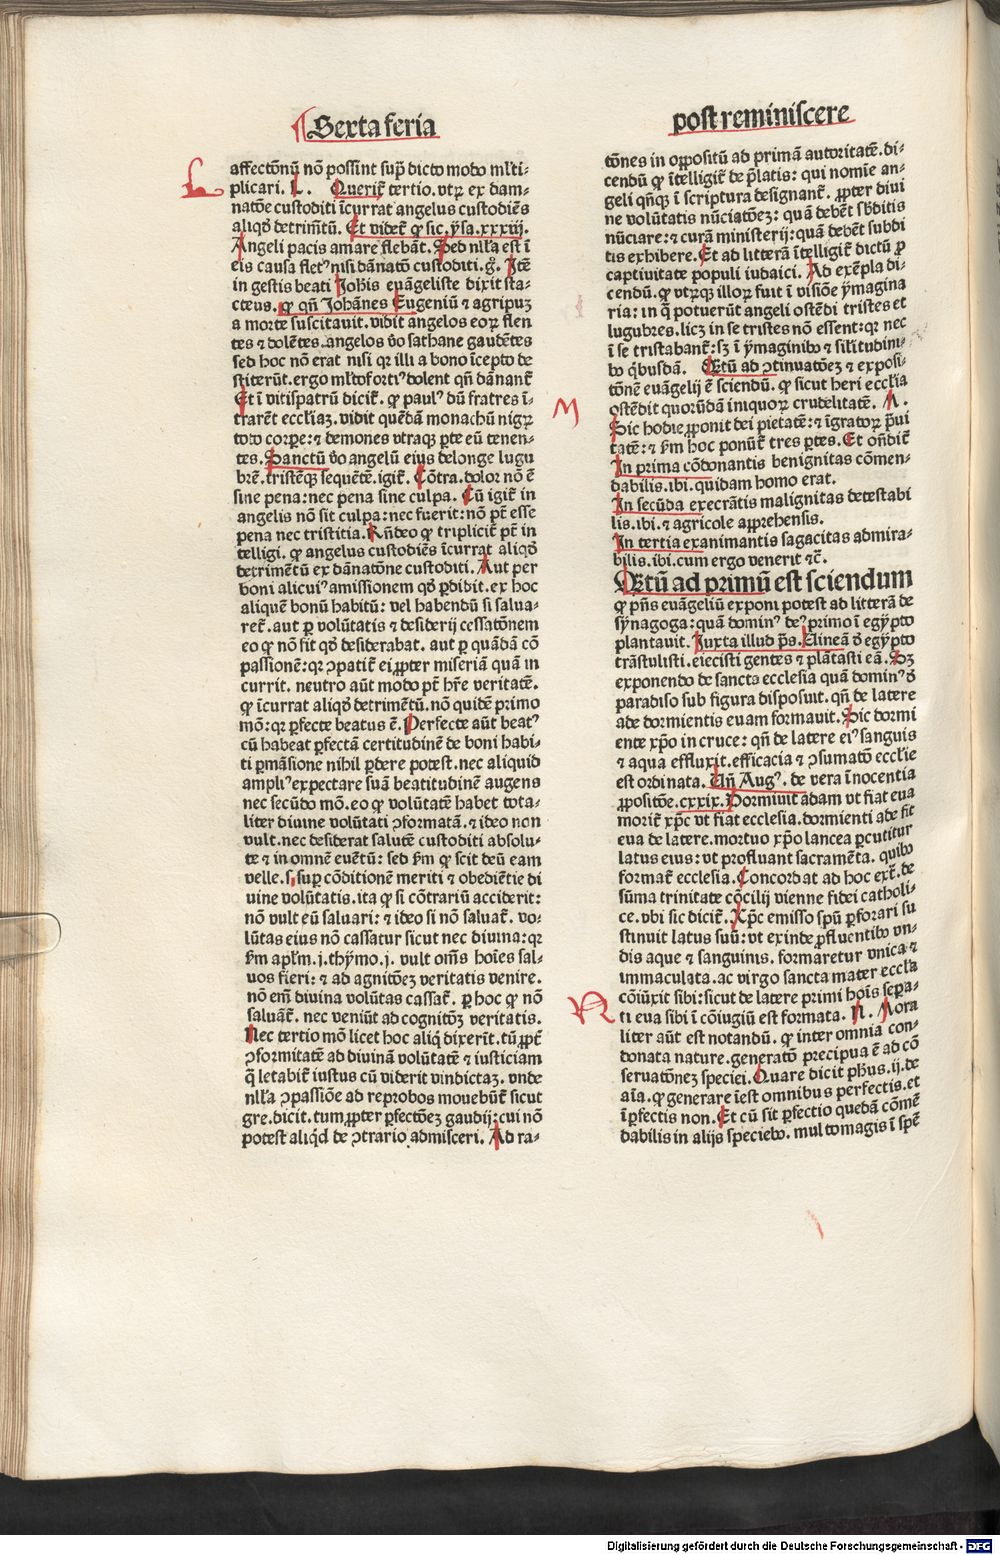 Sexta feria
affectōnū nō possint sup̄ dicto modo ml̄ti⸗
plicari. L. Querit᷑ tertio. vtꝝ ex dam⸗
natōe custoditi īcurrat angelus custodiēs
aliqd̄ detrim̄tū. Et videt᷑ ꝙ sic. ysa. xxxiij.
Angeli pacis amare flebāt. Sed nll̄a est ī
eis causa flet⁹ nisi dānatō custoditi. gͦ. Itē
in gestis beati Joh̄is euāgeliste dixit sta⸗
cteus. ꝙ qn̄ Johānes Eugeniū ⁊ agripuꝫ
a morte suscitauit. vidit angelos eoꝝ flen
tes ⁊ dolētes. angelos v̄o sathane gaudētes
sed hoc nō erat nisi qꝛ illi a bono īcepto de
stiterūt. ergo ml̄toforti⁹ dolent qn̄ dānant᷑
Et ī vitispatrū dicit᷑. ꝙ paul⁹ dū fratres ī⸗
trarēt eccl̄iaꝫ. vidit quēdā monachū nigꝝ
toto corꝑe: ⁊ demones vtraqꝫ ꝑte eū tenen⸗
tes. Sanctū v̄o angelū eius delonge lugu
brē. tristēqꝫ sequētē. igit᷑. Cōtra. dolor nō ē
sine pena: nec pena sine culpa. Cū igit᷑ in
angelis nō sit culpa: nec fuerit: nō pt̄ esse
pena nec tristitia. Rn̄deo ꝙ triplicit᷑ pt̄ in
telligi. ꝙ angelus custodiēs īcurrat aliqd̄
detrimētū ex dānatōne custoditi. Aut per
boni alicui⁹ amissionem qd̄ ꝑdidit. ex hoc
aliquē bonū habitū: vel habendū si salua⸗
ret᷑. aut ꝑ volūtatis ⁊ desiderij cessatōnem
eo ꝙ nō fit qd̄ desiderabat. aut ꝑ quādā cō
passionē: qꝛ ↄpatit᷑ ei ꝓpter miseriā quā in
currit. neutro aūt modo pt̄ hr̄e veritatē.
ꝙ īcurrat aliqd̄ detrimētū. nō quidē primo
mō: qꝛ ꝑfecte beatus ē. Perfecte aūt beat⁹
cū habeat ꝑfectā certitudinē de boni habi⸗
ti ꝑmāsione nihil ꝑdere potest. nec aliquid
ampli⁹ expectare suā beatitudinē augens
nec secūdo mō. eo ꝙ volūtatē habet tota⸗
liter diuine volūtati ↄformatā. ⁊ ideo non
vult. nec desiderat salutē custoditi absolu⸗
te ⁊ in omnē euētū: sed ẜm ꝙ scit deū eam
velle. s. suꝑ cōditionē meriti ⁊ obediētie di
uine volūtatis. ita ꝙ si cōtrariū acciderit:
nō vult eū saluari: ⁊ ideo si nō saluat᷑. vo⸗
lūtas eius nō cassatur sicut nec diuina: qꝛ
ẜm apl̄m. j. thymo. j. vult om̄s hoīes sal⸗
uos fieri: ⁊ ad agnitōeꝫ veritatis venire.
nō em̄ diuina volūtas cassat᷑. ꝑ hoc ꝙ nō
saluāt᷑. nec veniūt ad cognitōꝫ veritatis.
Nec tertio mō licet hoc aliq̄ dixerīt. tū ꝓpt᷑
ↄformitatē ad diuinā volūtatē ⁊ iusticiam
q̄ letabit᷑ iustus cū viderit vindictaꝫ. vnde
nll̄a ↄpassiōe ad reprobos mouebūt᷑ sicut
gre. dicit. tum ꝓpter ꝑfectōeꝫ gaudij: cui nō
potest aliqͥd de ↄtrario admisceri. Ad ra⸗
L
post reminiscere
tōnes in oppositū ad primā autoritatē. di⸗
cendū ꝙ ītelligit᷑ de p̄latis: qui nomīe an⸗
geli qn̄qꝫ ī scriptura designant᷑. ꝓpter diui
ne volūtatis nūciatōeꝫ: quā debēt sb̄ditis
nūciare: ⁊ curā ministerij: quā debēt subdi
tis exhibere. Et ad litterā ītelligit᷑ dictū ꝓ
captiuitate populi iudaici. Ad exēpla di⸗
cendū. ꝙ vtꝝqꝫ illoꝝ fuit ī visiōe ymagina
ria: in q̄ potuerūt angeli ostēdi tristes et
lugubres. licꝫ in se tristes nō essent: qꝛ nec
ī se tristabant᷑: sꝫ ī ymaginibꝰ ⁊ sil̄itudini⸗
bꝰ qͥbusdā. Q̄tū ad ↄtinuatōeꝫ ⁊ exposi⸗
tōnē euāgelij ē sciendū. ꝙ sicut heri eccl̄ia
ostēdit quorūdā iniquoꝝ crudelitatē. M.
Sic hodie ꝓponit dei pietatē: ⁊ īgratoꝝ p̄ui
tatē: ⁊ ẜm hoc ponūt᷑ tres ꝑtes. Et on̄dit᷑
In prima cōdonantis benignitas cōmen⸗
dabilis. ibi. quidam homo erat.
In secūda execrātis malignitas detestabi
lis. ibi. ⁊ agricole apprehensis.
In tertia examinantis sagacitas admira⸗
bilis. ibi. cum ergo venerit ⁊c̄.
Q̄tū ad primū est sciendum
ꝙ pn̄s euāgeliū exponi potest ad litterā de
synagoga: quā domin⁹ de⁹ primo ī egypto
plantauit. Iuxta illud ps̄. Vineā d̄ egypto
trāstulisti. eiecisti gentes ⁊ plātasti eā. Sꝫ
exponendo de sancta ecclesia quā domin⁹ d̄
paradiso sub figura disposuit. qn̄ de latere
ade dormientis euam formauit. Sic dormi
ente xp̄o in cruce: qn̄ de latere ei⁹ sanguis
⁊ aqua effluxit. efficacia ⁊ ↄsumatō eccl̄ie
est ordinata. Vn̄ Aug⁹. de vera īnocentia
ꝓpositōe. cxxix. Dormiuit adam vt fiat eua
morit᷑ xp̄c vt fiat ecclesia. dormienti ade fit
eua de latere. mortuo xp̄o lancea ꝑcutitur
latus eius: vt profluant sacramēta. quibꝰ
format᷑ ecclesia. Concordat ad hoc ext᷑. de
sūma trinitate cōcilij vienne fidei catholi⸗
ce. vbi sic dicit᷑. Xp̄c emisso spū ꝑforari su
stinuit latus suū: vt exinde ꝓfluentibꝰ vn⸗
dis aque ⁊ sanguinis. formaretur vnica ⁊
immaculata. ac virgo sancta mater eccl̄ia
cōiūxit sibi: sicut de latere primi hoīs sepa⸗
ti eua sibi ī cōiugiū est formata. N. Mora
liter aūt est notandū. ꝙ inter omnia con⸗
donata nature. generatō precipua ē ad cō
seruatōneꝫ speciei. Quare dicit ph̄us. ij. de
aīa. ꝙ generare īest omnibus perfectis. et
īꝑfectis non. Et cū sit ꝑfectio quedā cōmē
dabilis in alijs speciebꝰ. multomagis ī spē
M
N
Digitalisierung gefördert durch die Deutsche Forschungsgemeinschaft - DFG